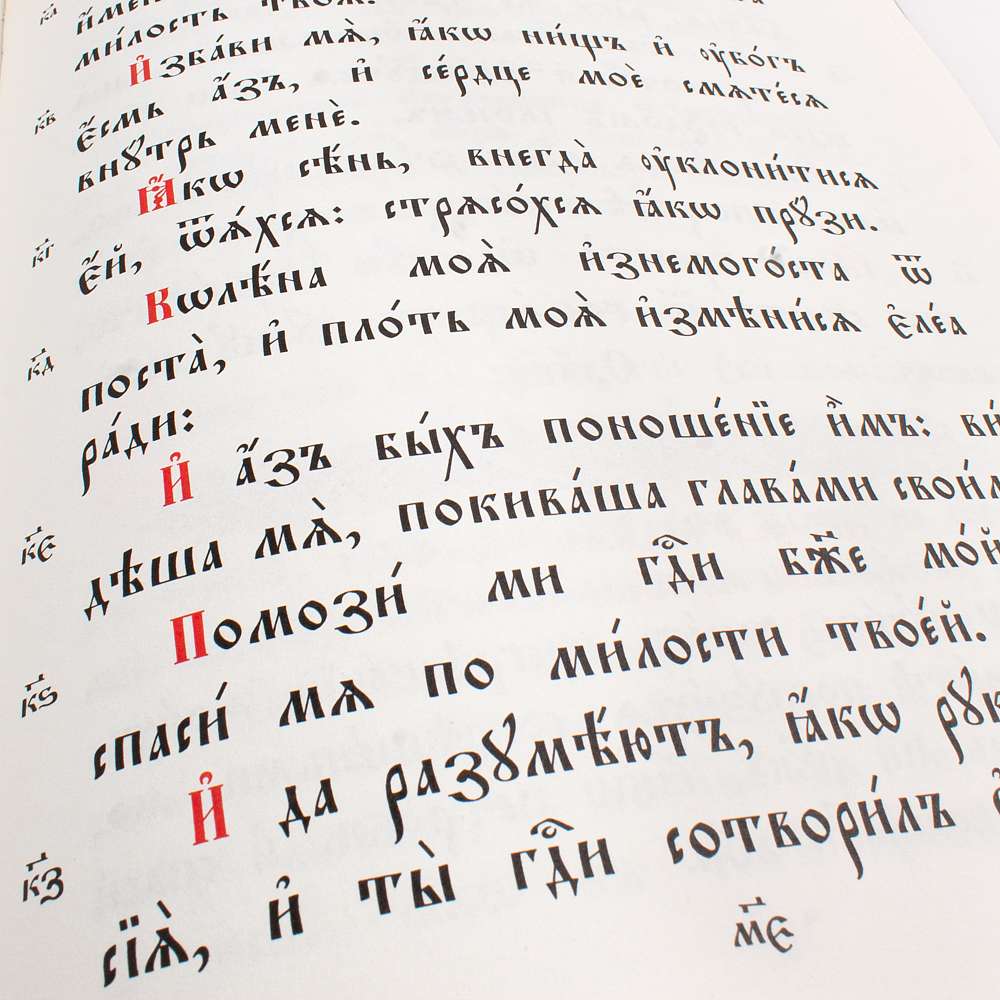 к҃а
и҆́мене
твоя̀.
ми́лость твоѧ̀.
И҆зба́ви мѧ̀, ꙗ҆́кѡ ни́щъ и҆ ᲂу҆бо́гъ
к҃в
є҆́смь а҆́зъ, и҆ се́рдце моѐ смѧте́сѧ
внꙋ́трь менѐ.
Ꙗ҆́кѡ сѣ́нь, внегда̀ ᲂу҆клони́тисѧ
к҃г
є҆́й, ѿѧ́хсѧ: стрѧсо́хсѧ ꙗ҆́кѡ прꙋ́зи.
Кѡлѣ́на моѧ̑ и҆знемого́ста ѿ
к҃д
поста̀, и҆ пло́ть моѧ̀ и҆змѣни́сѧ є҆ле́а
ра́ди:
И҆ а҆́зъ бы́хъ поноше́нїе и҆̀мъ: ви́
к҃є
дѣша мѧ̀, покива́ша глава́ми свои́м
Помози́ ми гдⷭ҇и бж҃е мо́й
к҃ѕ
спаси́ мѧ по ми́лости твое́й.
И҆ да разꙋмѣ́ютъ, ꙗ҆́кѡ рꙋк
к҃з
сїѧ̀, и҆ ты̀ гдⷭ҇и сотвори́лъ
м҃є